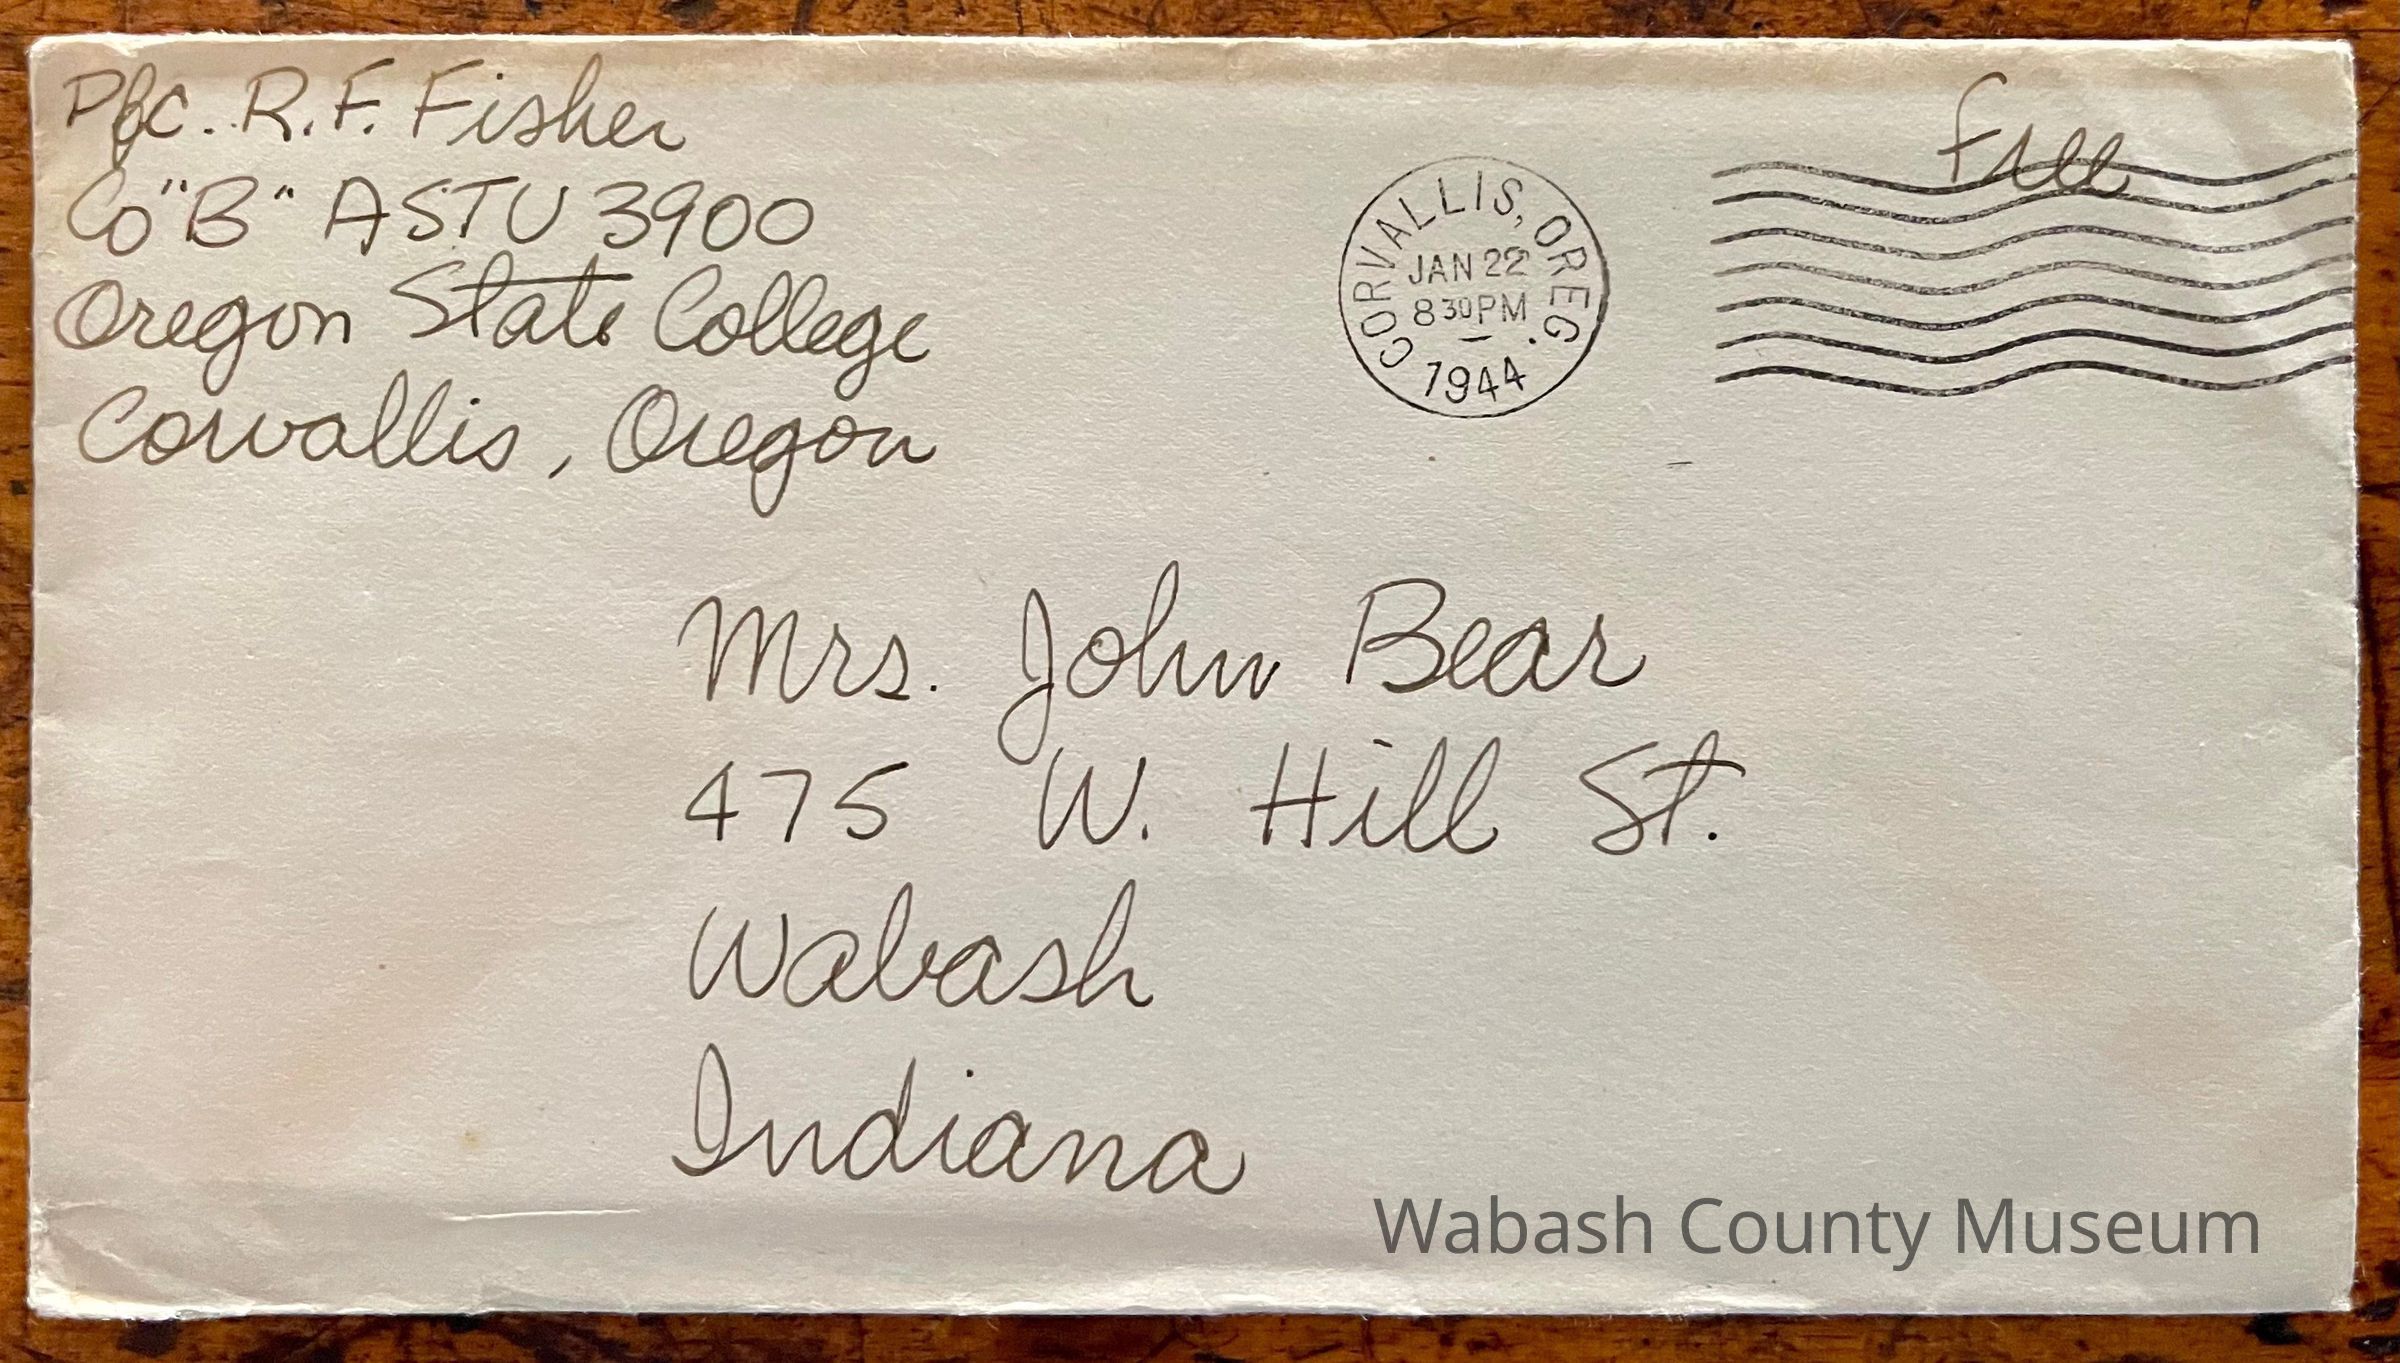 Pfc. R. F. Fisher
Co "B" ASTU 3900
Oregon State College
Corvallis, Oregon
CORVALLIS, OREG.
JAN 22
8 30 PM
1944
Free
Mrs. John Bear
475 W. Hill St.
Wabash
Indiana
Wabash County Museum